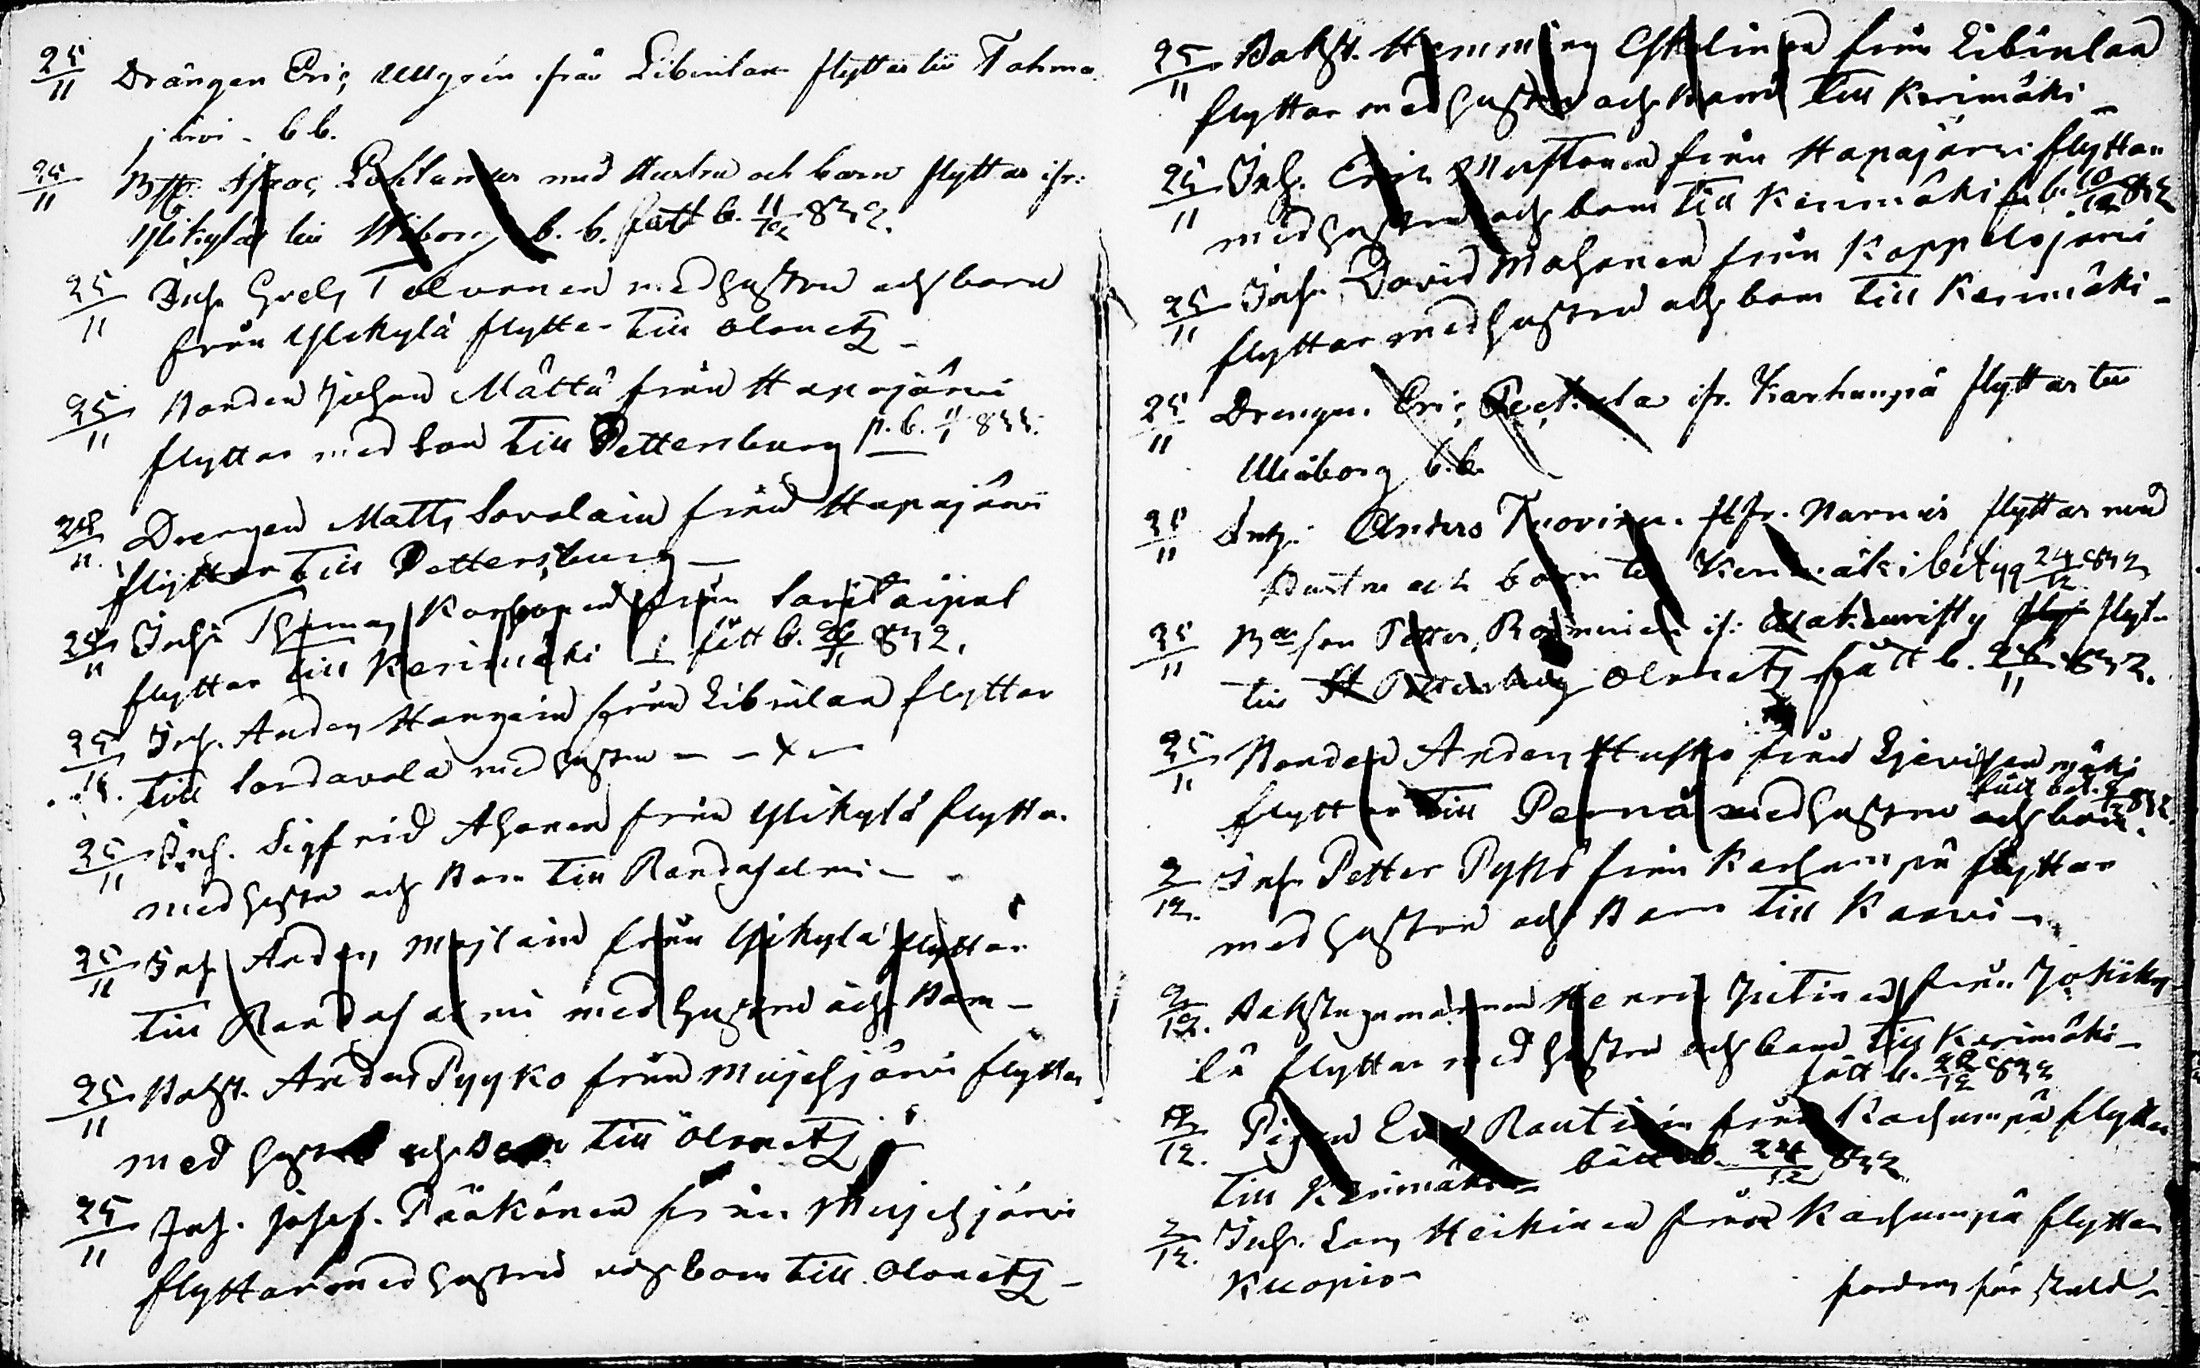 25/11 Drängen Eric Ullgrén från Libinlax flyttar till Tahma
järvi - b b.
25/11 med Hustru och barn flyttar ifr:
Ylikylä till Wiborg b. b. fått b. 11/12 832.
25/11 Inh. Grels Tolvanen med hustru och barn
från Ylikylä flyttar till Olonetz -
25/11 Bonden Johan Mättä från Hapajärvi
flyttar med son till Pettersburg 833.
25/11 Drengen Matts Savolain från Hapajärvi
flyttar till Pettersburg -
25/11 Inh. Thomas från Savitaipal
flyttar till Kerimäki fått b. 26/11 832.
25/11 Inh. Anders från Libinlax flyttar
till Sordavala med hustru - - x -
25/11 Inh. Sigfrid Ahonen från Ylikylä flyttar
med hustru och Barn till Randasalmi -
25/11 Inh. Anders från Ylikylä flyttar
till Randasalmi med hustru och Barn -
25/11 Bakst. Anders Pyyko från Mujejärvi flyttar
med hustru och Barn till Olonetz
25/11 Inh. Josef. Pääkönen från Mujejärvi
flyttar med hustru och barn till Olonetz -
25/11 Bakst. Hemming från Libinlax
flyttar med hustru och Barn till Kerimäki -
25/11 Inh. Eric Mustonen från Hapajärvi flyttar
med hustru och barn till Kerimäki b. 10/12 832
25/11 Inh. David Mahonen från Koppelojärvi
flyttar med hustru och barn till Kerimäki -
25/11 Drengen Eric ifr. Karhunpä flyttar till
Uleåborg b.b.
25/11 Inh. Anders Kuovinen ifr. flyttar med
Hustru och barn till Kerimäki betyg 24/12 832
25/11 Petter flytt
till St Pettersburg Olonetz fått b. 26/11 832.
25/11 Bonden Anders Husko från
flyttar till Pernå med hustru och barn. fått bet. 832
2/12. Inh. Petter Pykkö från Karhunpä flyttar
med hustru och Barn till Kaavi -
2/12. Bakstugumannen Henric Jutinen från Jokiky
lä flyttar med hustru och barn till Kerimäki -
fått b. 22/12 832
2/12. Pigan Eva Rautiain från Karhunpä flyttar
till Kerimäki - b. 24/12 832
2/12. Inh. Lars Heikinen från Karhunpä flyttar
Kuopio -